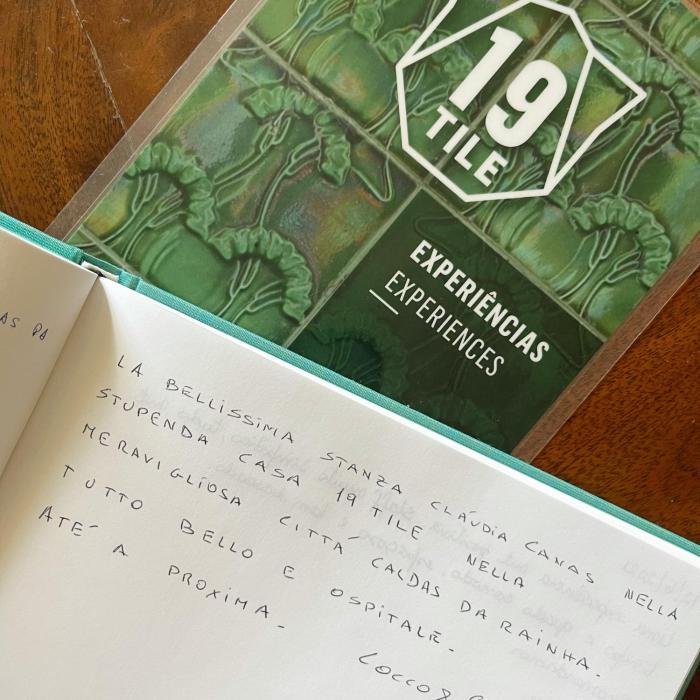 19
TILE
EXPERIÊNCIAS
EXPERIENCES
AS DA
LA BELLISSIMA STANZA CLÁUDIA CANAS NELLA
STUPENDA CASA 19 TILE NELLA
MERAVIGLIOSA CITTÁ CALDAS DA RAINHA.
TUTTO BELLO E OSPITALE.
ATE´ A PROXIMA.